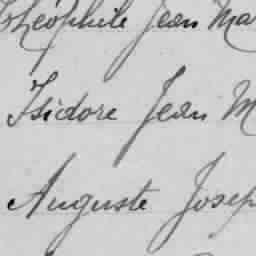 Théophile Jean Ma
Isidore Jean M
Auguste Josep